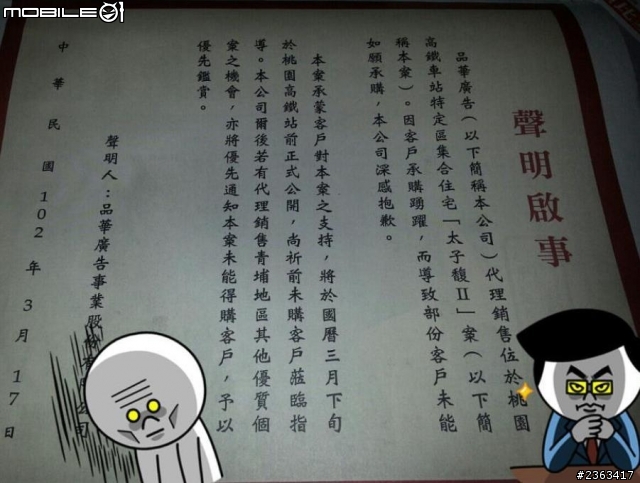 MOBILE01
聲明啟事
品華廣告（以下簡稱本公司）代理銷售位於桃園
高鐵車站特定區集合住宅「太子馥Ⅱ」案（以下簡
稱本案）。因客戶承購踴躍，而導致部份客戶未能
如願承購，本公司深感抱歉。
本案承蒙客戶對本案之支持，將於國曆三月下旬
於桃園高鐵站前正式公開，尚祈前未購客戶蒞臨指
導。本公司爾後若有代理銷售青埔地區其他優質個
案之機會，亦將優先通知本案未能得購客戶，予以
優先鑑賞。
聲明人：品華廣告事業股份有限公司
中華民國102年3月17日
#2363417